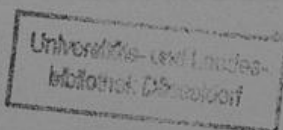 Universitäts- und Landes-
bibliothek Düsseldorf